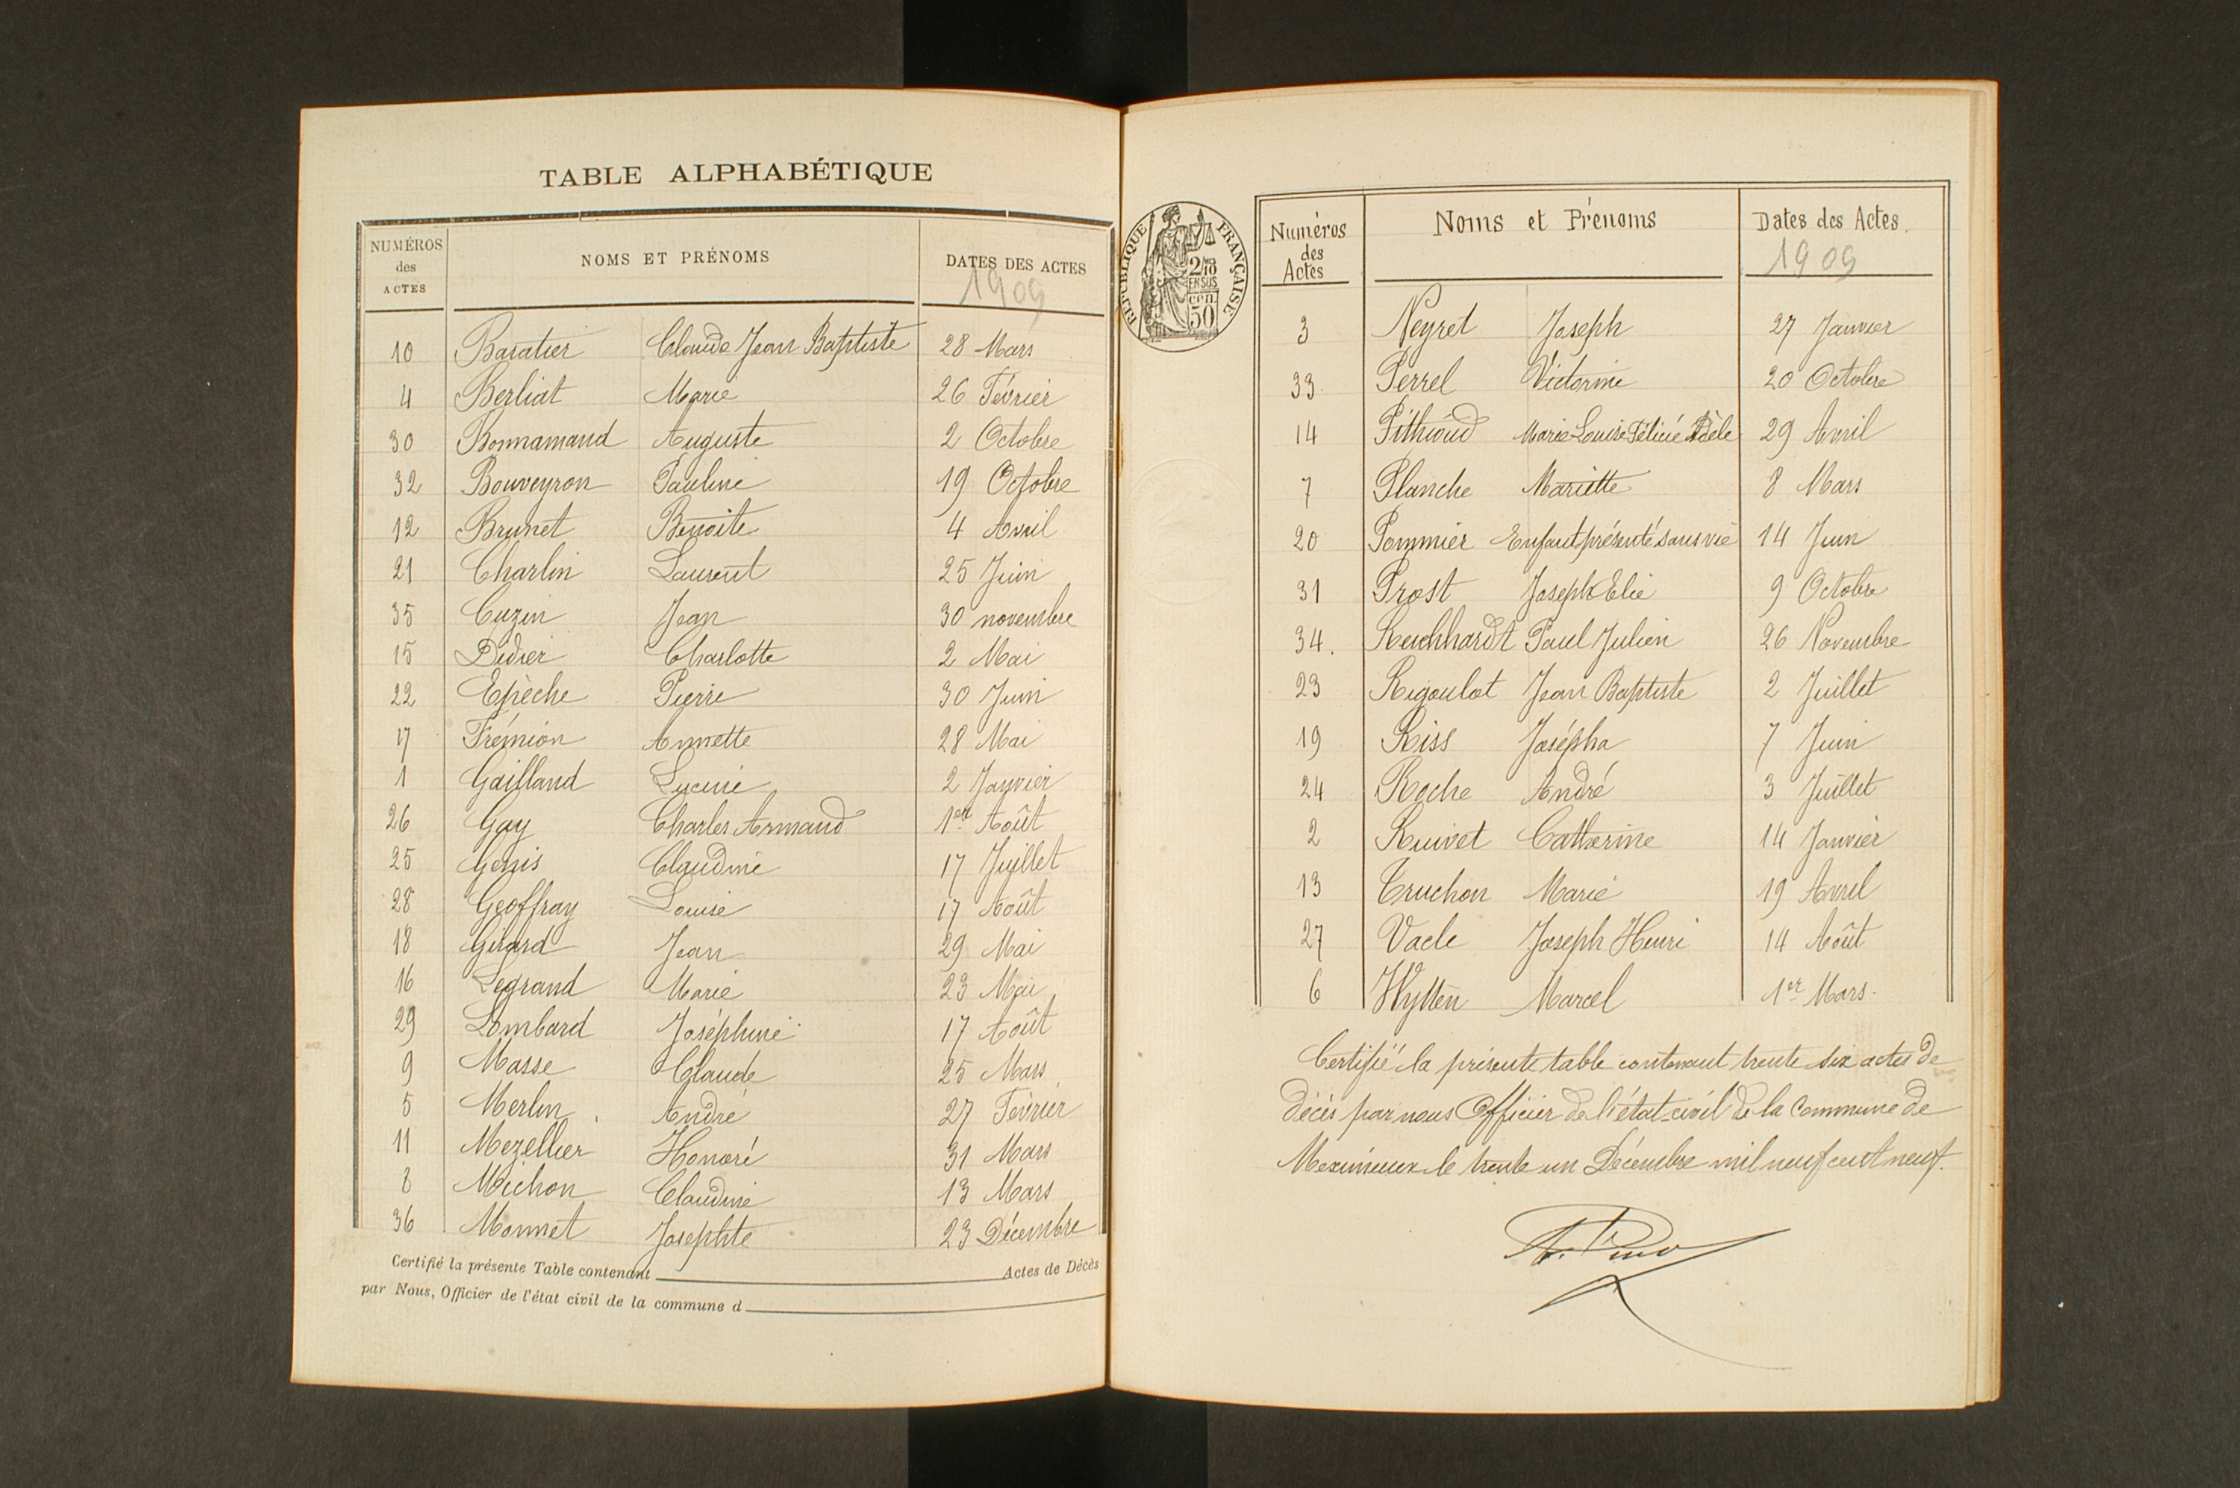 TABLE ALPHABÉTIQUE
NUMÉROS des ACTES NOMS ET PRÉNOMS DATES DES ACTES
1909
10 Baratier Claude Jean Baptiste 28 Mars
4 Berliat Marie 26 Février
30 Bonnamand Auguste 2 Octobre
32 Bouveyron Pauline 19 Octobre
12 Brunet Benoite 4 Avril
21 Charlin Laurent 25 Juin
35 Cuzin Jean 30 novembre
15 Didier Charlotte 2 Mai
22 Epèche Pierre 30 Juin
17 Frémion Annette 28 Mai
1 Gailland Lucine 2 Janvier
26 Gay Charles Armand 1er Août
25 Genis Claudine 17 Juillet
28 Geoffray Louise 17 Août
18 Girard Jean 29 Mai
16 Legrand Marie 23 Mai
29 Lombard Joséphine 17 Août
9 Masse Claude 25 Mars
5 Merlin André 27 Février
11 Mezellier Honoré 31 Mars
8 Michon Claudine 13 Mars
36 Monnet Josephte 23 Décembre
Certifié la présente Table contenant Actes de Décès
par Nous, Officier de l'état civil de la commune d
RÉPUBLIQUE FRANÇAISE
2/10
EN SUS
cen.
50
Numéros des Actes Noms et Prénoms Dates des Actes.
1909
3 Neyret Joseph 27 Janvier
33. Perrel Victorine 20 Octobre
14 Pithioud Marie Louise Félicie Adèle 29 Avril
7 Planche Mariette 8 Mars
20 Pommier Enfant présenté sans vie 14 Juin
31 Prost Joseph Elie 9 Octobre
34. Reichhardt Paul Julien 26 Novembre
23 Rigoulot Jean Baptiste 2 Juillet
19 Riss Josépha 7 Juin
24 Roche André 3 Juillet
2 Ruivet Catherine 14 Janvier
13 Truchon Marie 19 Avril
27 Vacle Joseph Henri 14 Août
6 Wytten Marcel 1er Mars.
Certifié la présente table contenant trente six actes de
décès par nous Officier de l'état-civil de la Commune de
Meximieux le trente un Décembre mil neuf cent neuf.